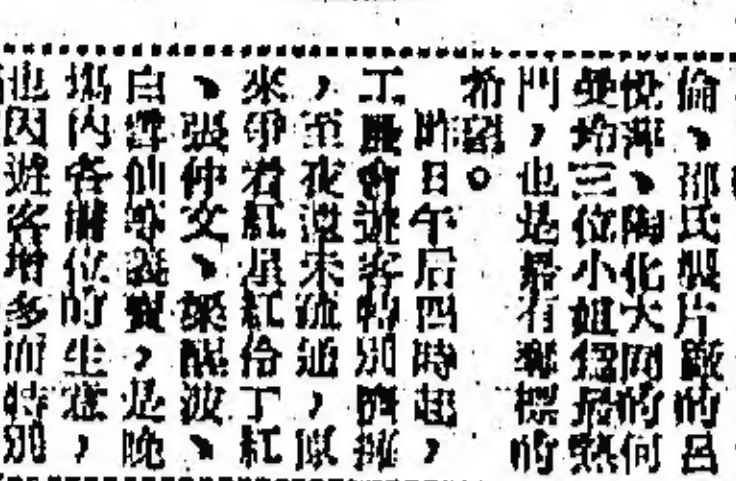 倫、邵氏製片廠的呂
悅萍、陶化大同的何
曼玲三位小姐為最熱
門，也是最有奪標的
希望。
昨日午后四時起，
工展會遊客特別擠擁，
，至夜深未疏通，似
來爭看紅星紅伶丁紅
、張仲文、梁醒波、
白雪仙等義賣，是晚
場內各攤位的生意，
也因遊客增多而特別